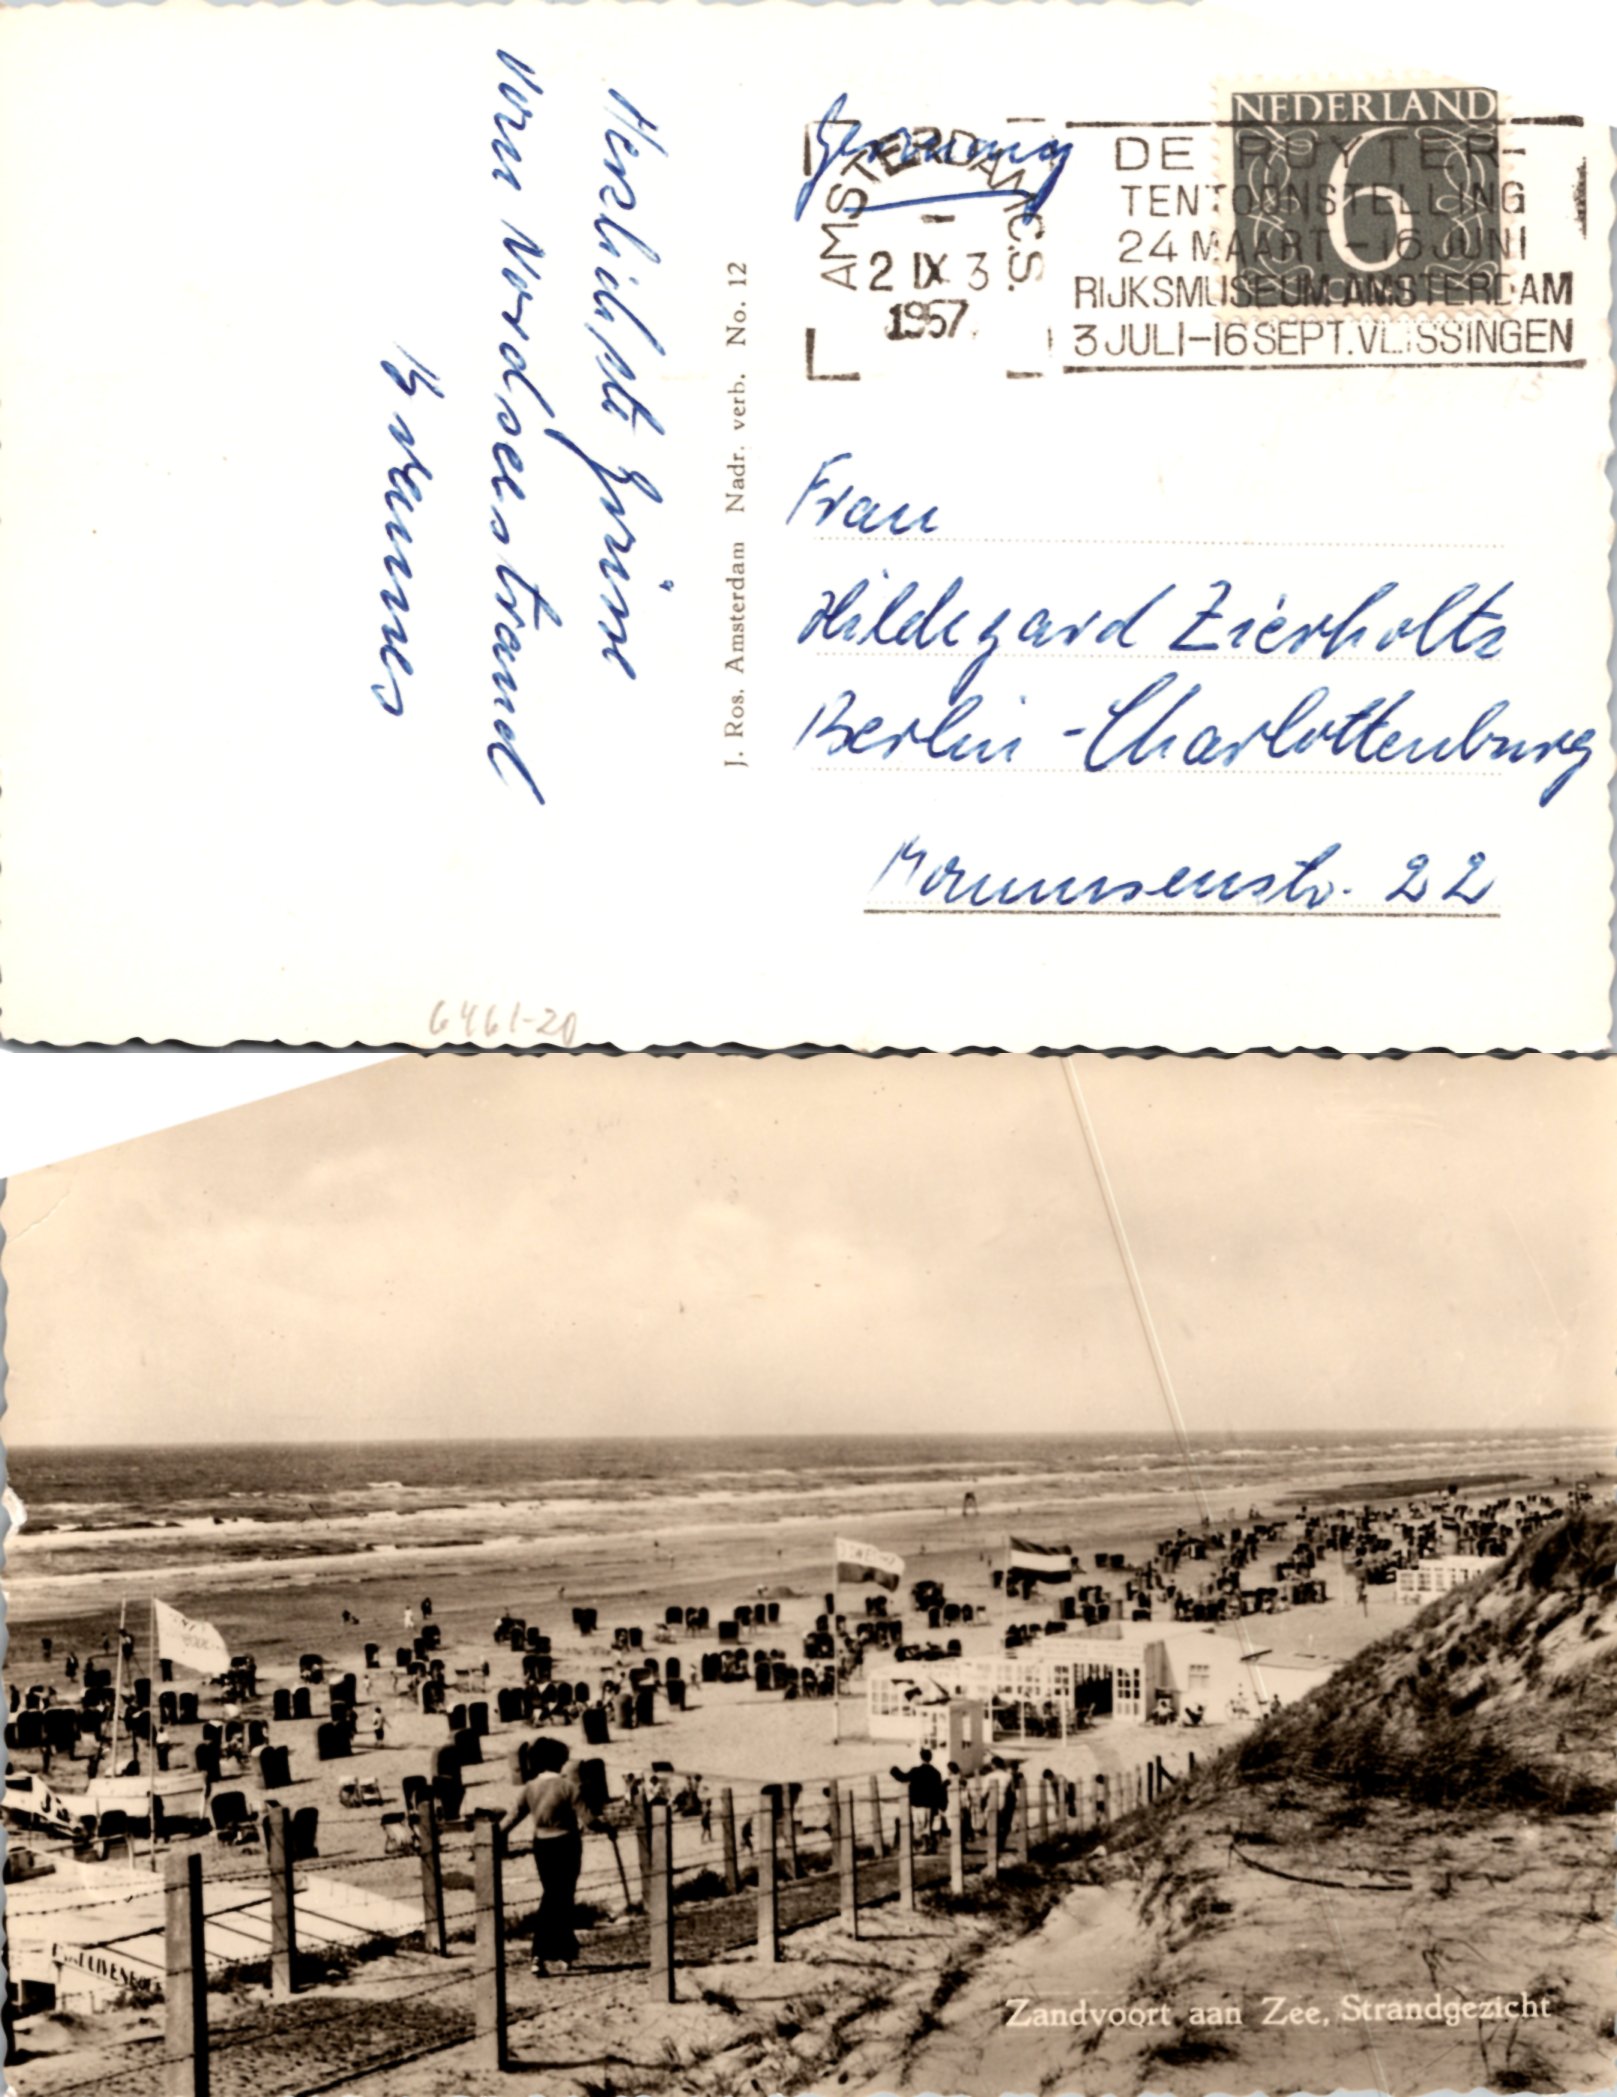 Herzlichste Grüsse
vom Nordseestrand
J. Ros. Amsterdam Nadr. verb. No. 12
Germany
AMSTERDAM C.S.
2 IX 3
1957
NEDERLAND
6
DE RUYTER-
TENTOONSTELLING
24 MAART-16 JUNI
RIJKSMUSEUM AMSTERDAM
3 JULI-16 SEPT. VLISSINGEN
Frau
Hildegard Zierholtz
Berlin-Charlottenburg
Mommsenstr. 22
6461-20
Zandvoort aan Zee, Strandgezicht